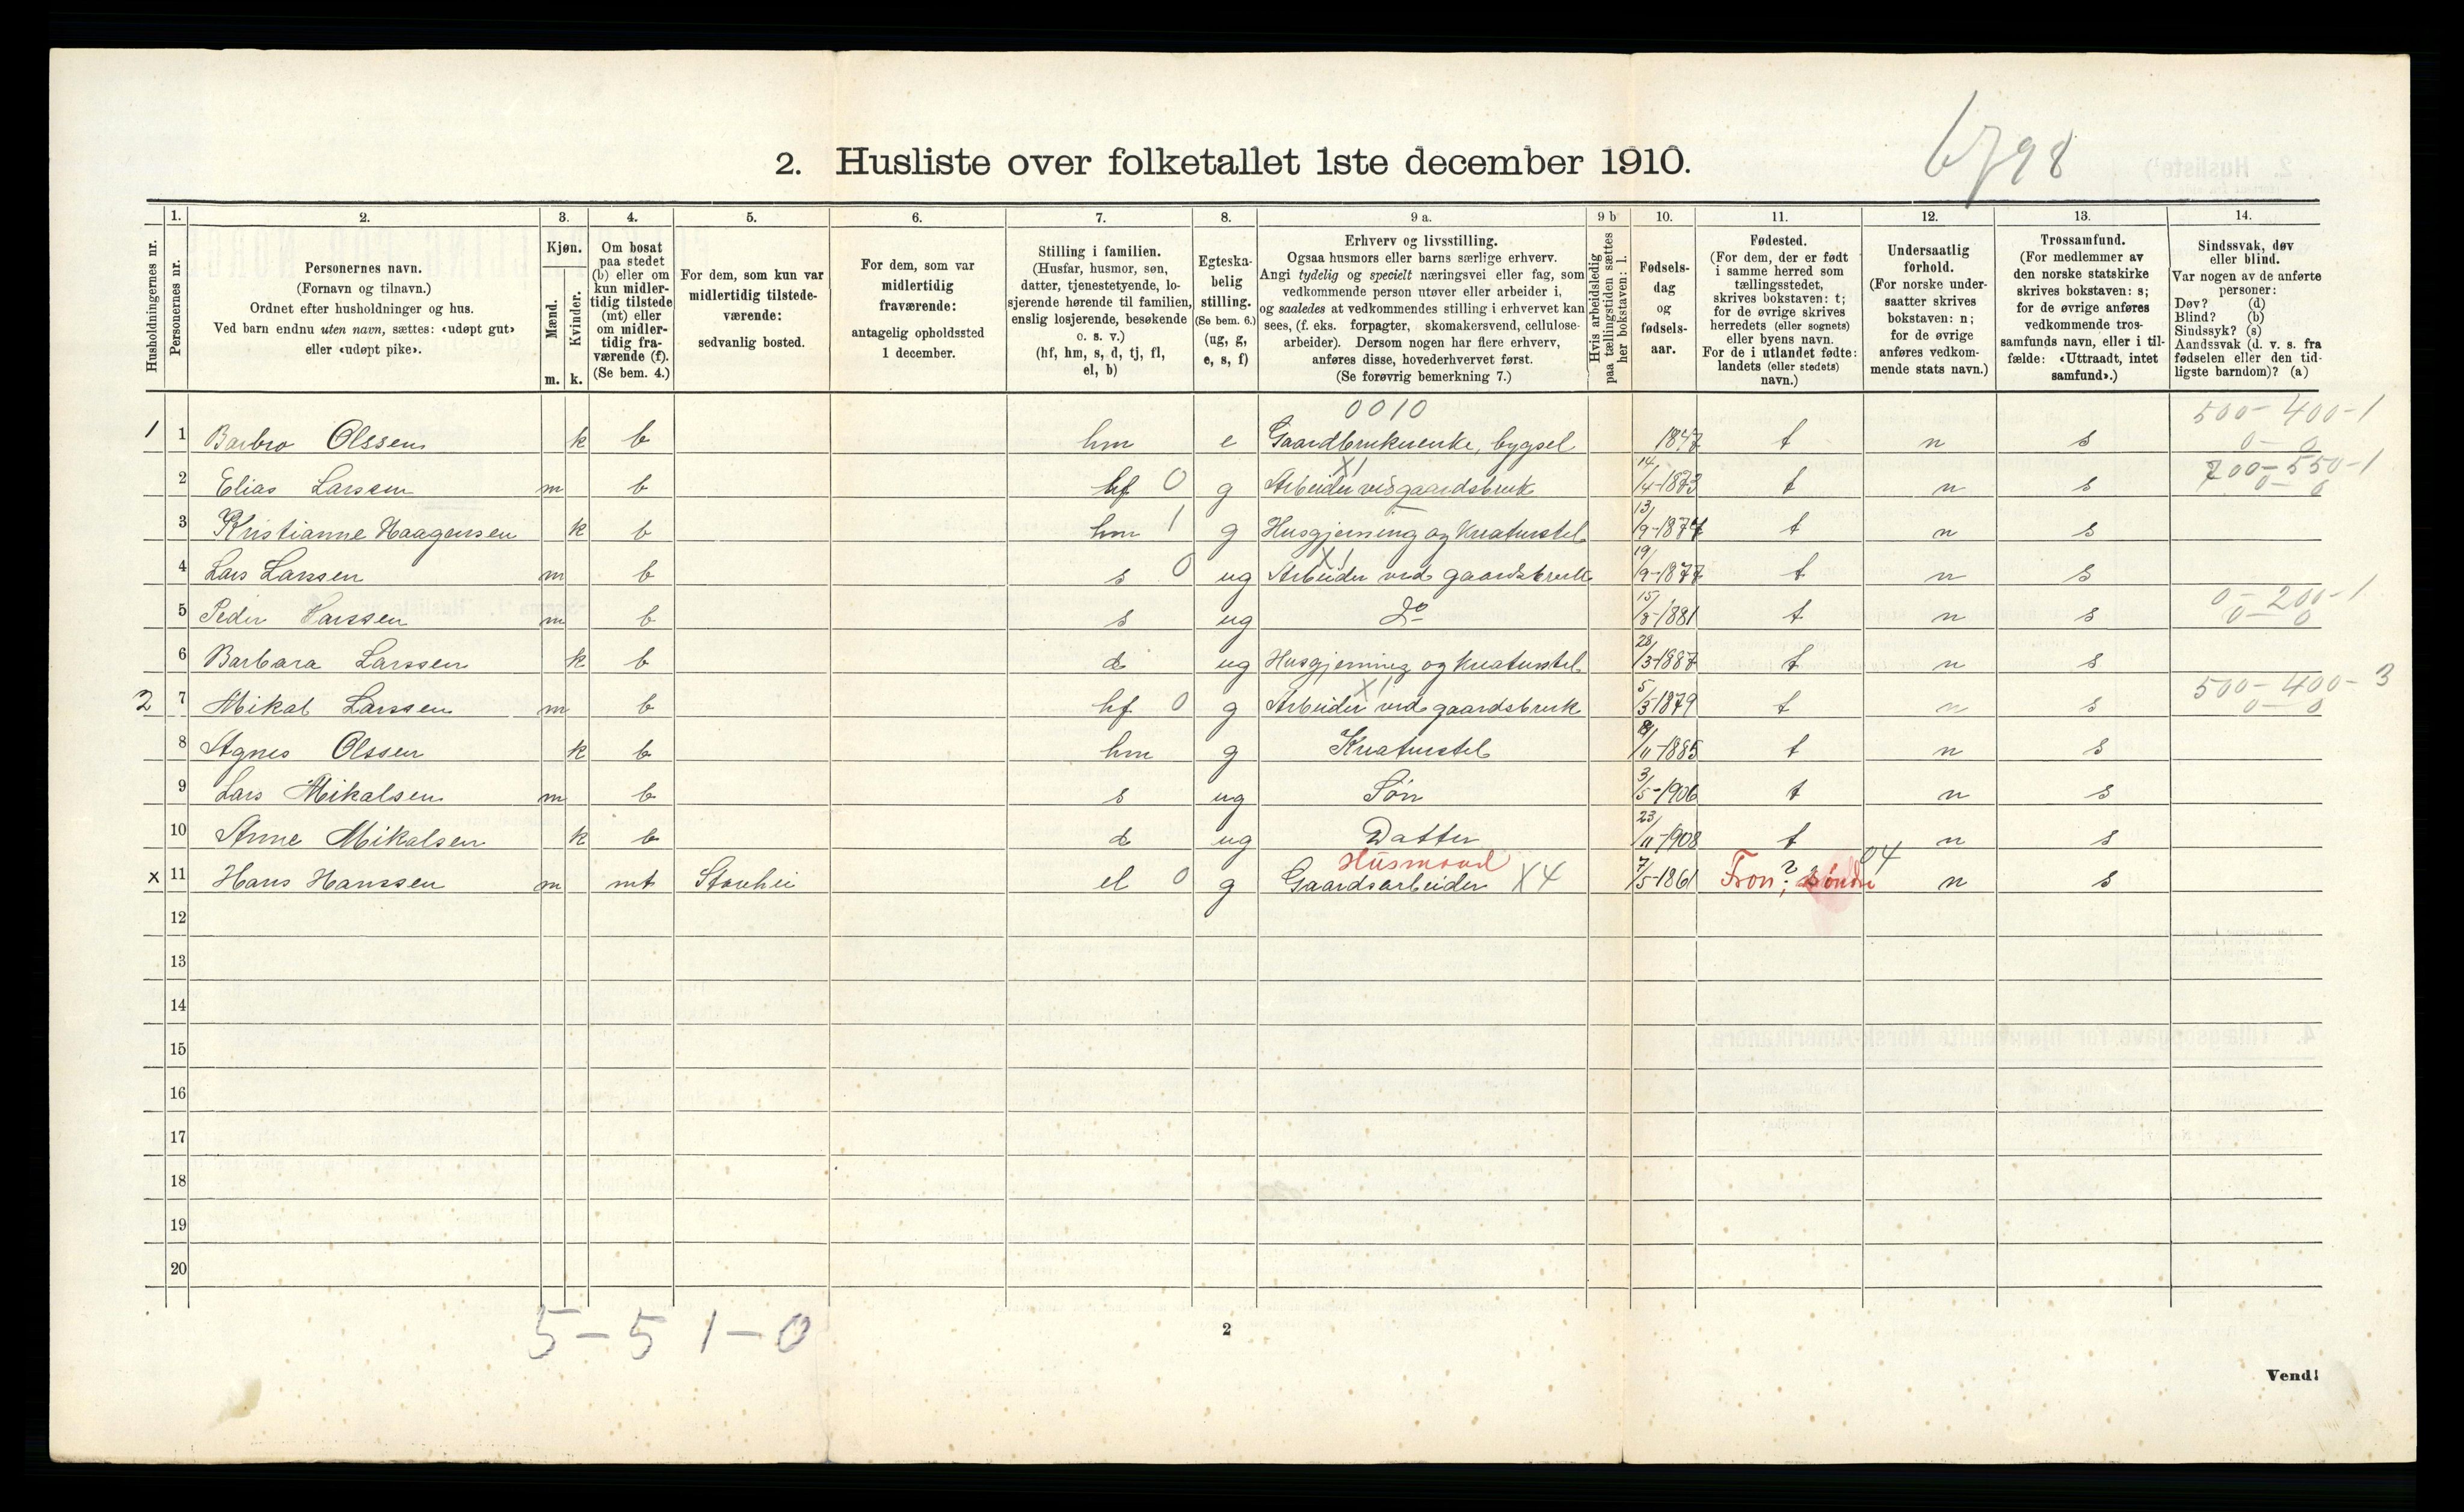 6798
2. Husliste over folketallet 1ste december 1910.
1. 2. 3. 4. 5. 6. 7. 8. 9 a. 9 b 10. 11. 12. 13. 14.
Husholdningernes nr.
Personernes nr.
Personernes navn.
(Fornavn og tilnavn.)
Ordnet efter husholdninger og hus.
Ved barn endnu uten navn, sættes: «udøpt gut»
eller «udøpt pike».
Kjøn.
Mænd.
Kvinder.
m. k.
Om bosat
paa stedet
(b) eller om
kun midler-
tidig tilstede
(mt) eller
om midler-
tidig fra-
værende (f).
(Se bem. 4.)
For dem, som kun var
midlertidig tilstede-
værende:
sedvanlig bosted.
For dem, som var
midlertidig
fraværende:
antagelig opholdssted
1 december.
Stilling i familien.
(Husfar, husmor, søn,
datter, tjenestetyende, lo-
sjerende hørende til familien,
enslig losjerende, besøkende
o. s. v.)
(hf, hm, s, d, tj, fl,
el, b)
Egteska-
belig
stilling.
(Se bem. 6.)
(ug, g,
e, s, f)
Erhverv og livsstilling.
Ogsaa husmors eller barns særlige erhverv.
Angi tydelig og specielt næringsvei eller fag, som
vedkommende person utøver eller arbeider i,
og saaledes at vedkommendes stilling i erhvervet kan
sees, (f. eks. forpagter, skomakersvend, cellulose-
arbeider). Dersom nogen har flere erhverv,
anføres disse, hovederhvervet først.
(Se forøvrig bemerkning 7.)
Hvis arbeidsledig
paa tællingstiden sættes
her bokstaven: l.
Fødsels-
dag
og
fødsels-
aar.
Fødested.
(For dem, der er født
i samme herred som
tællingsstedet,
skrives bokstaven: t;
for de øvrige skrives
herredets (eller sognets)
eller byens navn.
For de i utlandet fødte:
landets (eller stedets)
navn.)
Undersaatlig
forhold.
(For norske under-
saatter skrives
bokstaven: n;
for de øvrige
anføres vedkom-
mende stats navn.)
Trossamfund.
(For medlemmer av
den norske statskirke
skrives bokstaven: s;
for de øvrige anføres
vedkommende tros-
samfunds navn, eller i til-
fælde: «Uttraadt, intet
samfund».)
Sindssvak, døv
eller blind.
Var nogen av de anførte
personer:
Døv? (d)
Blind? (b)
Sindssyk? (s)
Aandssvak (d. v. s. fra
fødselen eller den tid-
ligste barndom)? (a)
0010 500-400-1
1 1 Barbro Olssen k b hm e Gaardbrukerenke, bygsel 1847 t n s 0-0
2 Elias Larssen m b hf 0 g Arbeider ved gaardsbruk X1 14/4-1873 t n s 700-550-1 0-0
3 Kristianne Haagensen k b hm 1 g Husgjerning og Kreaturstel 13/9-1874 t n s
4 Lars Larssen m b s 0 ug Arbeider ved gaardsbruk X1 19/9-1877 t n s
5 Peder Larssen m b s ug Do 15/3-1881 t n s 0-200-1 0-0
6 Barbara Larssen k b d ug Husgjerning og kreaturstel 28/3-1887 t n s
2 7 Mikal Larssen m b hf 0 g Arbeider ved gaardsbruk X1 5/3 1879 t n s 500-400-3 0-0
8 Agnes Olssen k b hm g Kreaturstel 8/11-1885 t n s
9 Lars Mikalsen m b s ug Søn 3/5-1906 t n s
10 Anne Mikalsen k b d ug Datter 23/11-1908 t n s
Husmand 04
x 11 Hans Hanssen m mt el 0 g Gaardsarbeider X4 7/5-1861 Fron?, søndre n s
12
13
14
15
16
17
18
19
20
5-5 1-0
2
Vend!